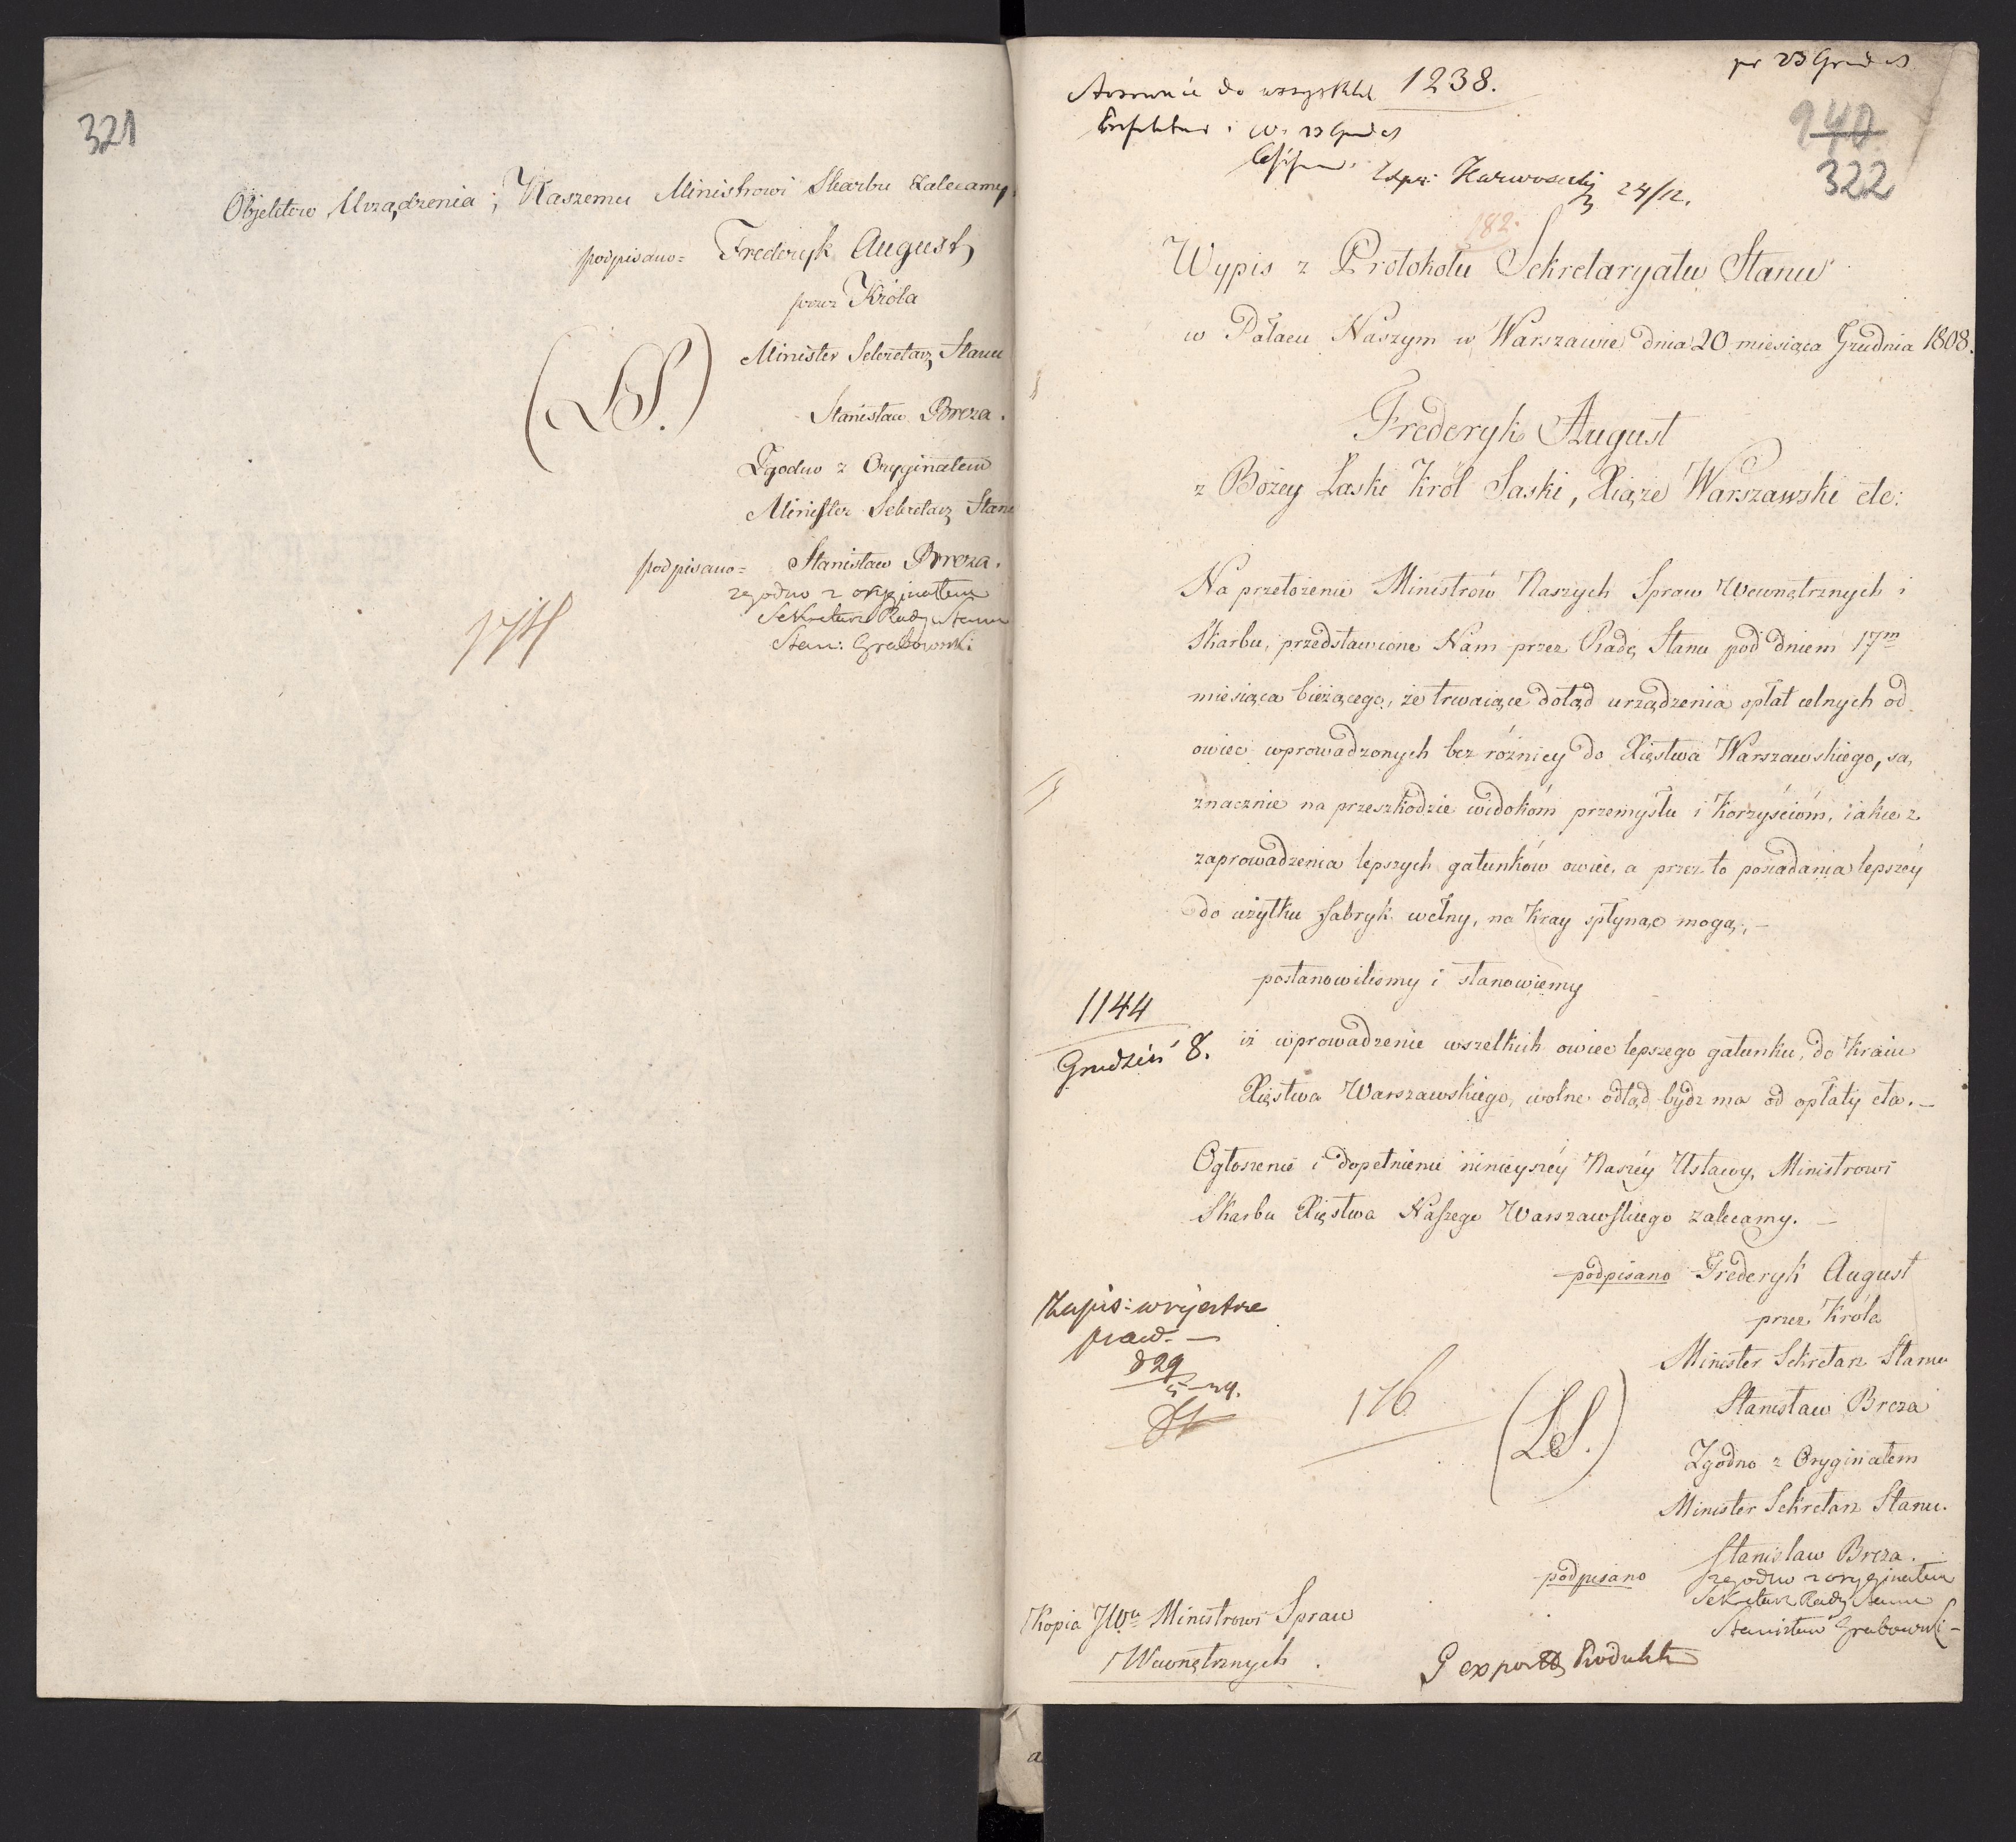 321
Objektow Urządzenia; Naszemu Ministrowi Skarbu zalecamy.
podpisano= Frederyk August
przez Króla
Minister Sekretarz Stanu
(LS.)
Stanisław Breza.
Zgodno z Oryginałem
Minister Sekretarz Stanu
podpisano= Stanisław Breza.
zgodno z oryginałem
Sekretarz Rady Stanu
Stan: Grabowski
pr 23 Grud
1238.
do wszystkich
940
322
24/12.
182.
Wypis z Protokołu Sekretaryatu Stanu
w Pałacu Naszym w Warszawie dnia 20 miesiąca Grudnia 1808.
Frederyk August
z Bożey Łaski Król Saski, Xiąże Warszawski etc:
Na przełożenie Ministrów Naszych Spraw Wewnętrznych i
Skarbu, przedstawione Nam przez Radę Stanu pod dniem 17m
miesiąca bieżącego, że trwaiące dotąd urządzenia opłat celnych od
owiec wprowadzonych bez różnicy do Xięstwa Warszawskiego, są
znacznie na przeszkodzie widokóm przemysłu i korzyścióm, iakie z
zaprowadzenia lepszych gatunków owiec, a przez to posiadania lepszéy
do użytku fabryk wełny, na Kray spłynąć mogą, –
postanowiliśmy i stanowiemy
1144
Grudzień 8.
iż wprowadzenie wszelkich owiec lepszego gatunku, do Kraiu
Xięstwa Warszawskiego, wolne odtąd bydź ma od opłaty cła. –
Ogłoszenie i dopełnienie ninieyszéy Naszéy Ustawy, Ministrowi
Skarbu Xięstwa Naszego Warszawskiego zalecamy. –
podpisano Frederyk August
przez Króla
Minister Sekretarz Stanu
Stanisław Breza
Zapis: w rejestrze
praw. –
829
176
(LS.)
Zgodno z Oryginałem
Minister Sekretarz Stanu.
podpisano Stanisław Breza.
zgodno z oryginałem
Sekretarz Rady Stanu
Stanisław Grabowski –
Kopia JWu Ministrowi Spraw
Wewnętrznych.